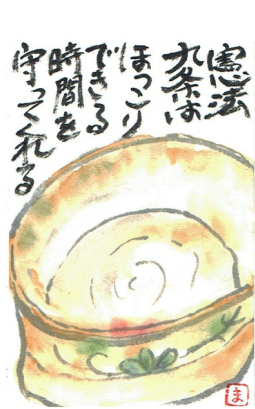 憲法
九条は
ほっこり
できる
時間を
守ってくれる
ま